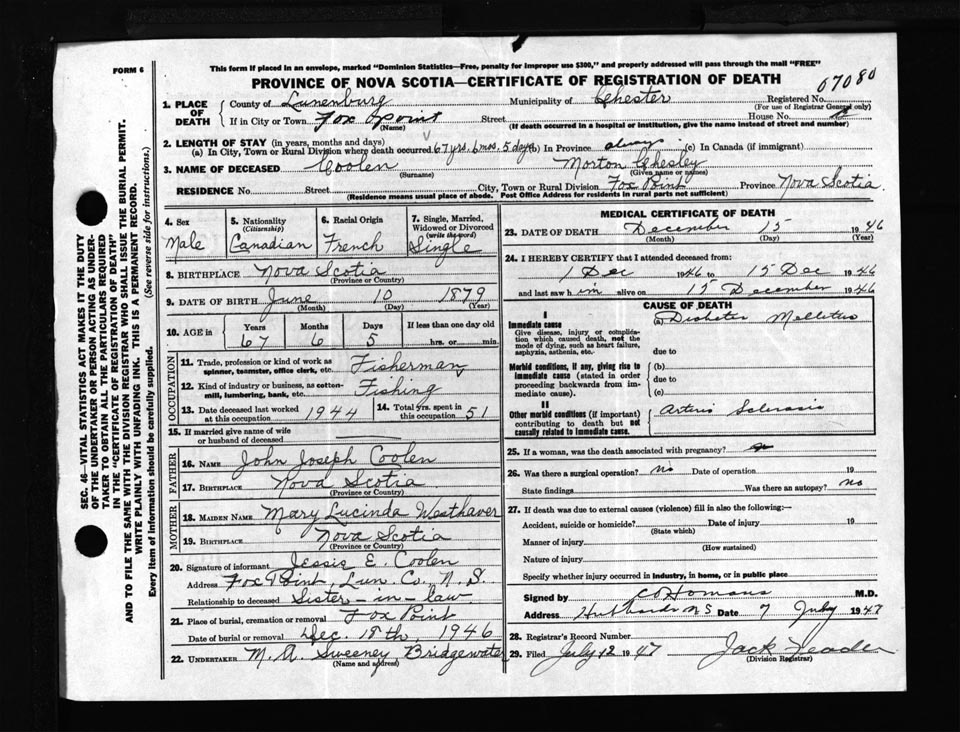 FORM 6
This form if placed in an envelope, marked "Dominion Statistics—Free, penalty for improper use $300," and properly addressed will pass through the mail "FREE"
PROVINCE OF NOVA SCOTIA—CERTIFICATE OF REGISTRATION OF DEATH
67080
1. PLACE OF DEATH County of Lunenburg Municipality of Chester Registered No.
(For use of Registrar General only)
If in City or Town Fox Point Street House No.
(Name) (If death occurred in a hospital or institution, give the name instead of street and number)
2. LENGTH OF STAY (in years, months and days)
(a) In City, Town or Rural Division where death occurred 67 yrs. 6 mos. 5 days (b) In Province always (c) In Canada (if immigrant)
3. NAME OF DECEASED Coolen Morton Chesley
(Surname) (Given name or names)
RESIDENCE No. Street City, Town or Rural Division Fox Point Province Nova Scotia
(Residence means usual place of abode. Post Office Address for residents in rural parts not sufficient)
4. Sex Male
5. Nationality (Citizenship) Canadian
6. Racial Origin French
7. Single, Married, Widowed or Divorced (write the word) Single
8. BIRTHPLACE Nova Scotia
(Province or Country)
9. DATE OF BIRTH June 10 1879
(Month) (Day) (Year)
10. AGE in Years Months Days If less than one day old
67 6 5 hrs. or min.
OCCUPATION
11. Trade, profession or kind of work as spinner, teamster, office clerk, etc. Fisherman
12. Kind of industry or business, as cotton-mill, lumbering, bank, etc. Fishing
13. Date deceased last worked at this occupation 1944
14. Total yrs. spent in this occupation 51
15. If married give name of wife or husband of deceased
FATHER
16. NAME John Joseph Coolen
17. BIRTHPLACE Nova Scotia
(Province or Country)
MOTHER
18. MAIDEN NAME Mary Lucinda Westhaver
19. BIRTHPLACE Nova Scotia
(Province or Country)
20. Signature of informant Jessie E. Coolen
Address Fox Point, Lun. Co. N. S.
Relationship to deceased Sister-in-law
21. Place of burial, cremation or removal Fox Point
Date of burial or removal Dec. 18th, 1946
22. UNDERTAKER M. A. Sweeney Bridgewater
(Name and address)
MEDICAL CERTIFICATE OF DEATH
23. DATE OF DEATH December 15 1946
(Month) (Day) (Year)
24. I HEREBY CERTIFY that I attended deceased from:
1 Dec 1946 to 15 Dec 1946
and last saw him alive on 15 December 1946
CAUSE OF DEATH
I
Immediate cause
Give disease, injury or complication which caused death, not the mode of dying, such as heart failure, asphyxia, asthenia, etc.
(a) Diabetes Mellitus
due to
Morbid conditions, if any, giving rise to immediate cause (stated in order proceeding backwards from immediate cause).
(b)
due to
(c)
II
Other morbid conditions (if important) contributing to death but not causally related to immediate cause.
Arterio Sclerosis
25. If a woman, was the death associated with pregnancy?
26. Was there a surgical operation? no Date of operation 19
State findings Was there an autopsy? no
27. If death was due to external causes (violence) fill in also the following:—
Accident, suicide or homicide? Date of injury 19
(State which)
Manner of injury
(How sustained)
Nature of injury
Specify whether injury occurred in industry, in home, or in public place
Signed by Homans M.D.
Address Hubbards N S Date 7 July 1947
28. Registrar's Record Number
29. Filed July 12 1947 Jack
(Division Registrar)
SEC. 46—VITAL STATISTICS ACT MAKES IT THE DUTY
OF THE UNDERTAKER OR PERSON ACTING AS UNDER-
TAKER TO OBTAIN ALL THE PARTICULARS REQUIRED
IN THE "CERTIFICATE OF REGISTRATION OF DEATH"
AND TO FILE THE SAME WITH THE DIVISION REGISTRAR WHO SHALL ISSUE THE BURIAL PERMIT.
WRITE PLAINLY WITH UNFADING INK. THIS IS A PERMANENT RECORD.
Every item of information should be carefully supplied. (See reverse side for instructions.)